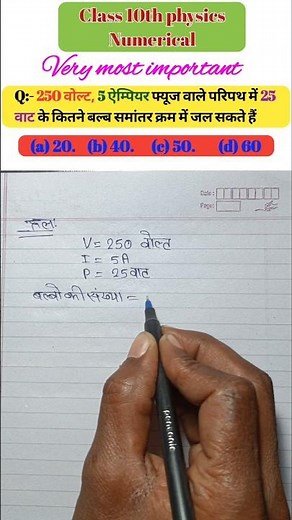 Class 10th physics
Numerical
Very most important
Q:- 250 वोल्ट, 5 ऐम्पियर फ्यूज वाले परिपथ में 25
वाट के कितने बल्ब समांतर क्रम में जल सकते हैं
(a) 20. (b) 40. (c) 50. (d) 60
Date :
Page :
हल:
V = 250 वोल्ट
I = 5A
P = 25वाट
बल्बो की संख्या =